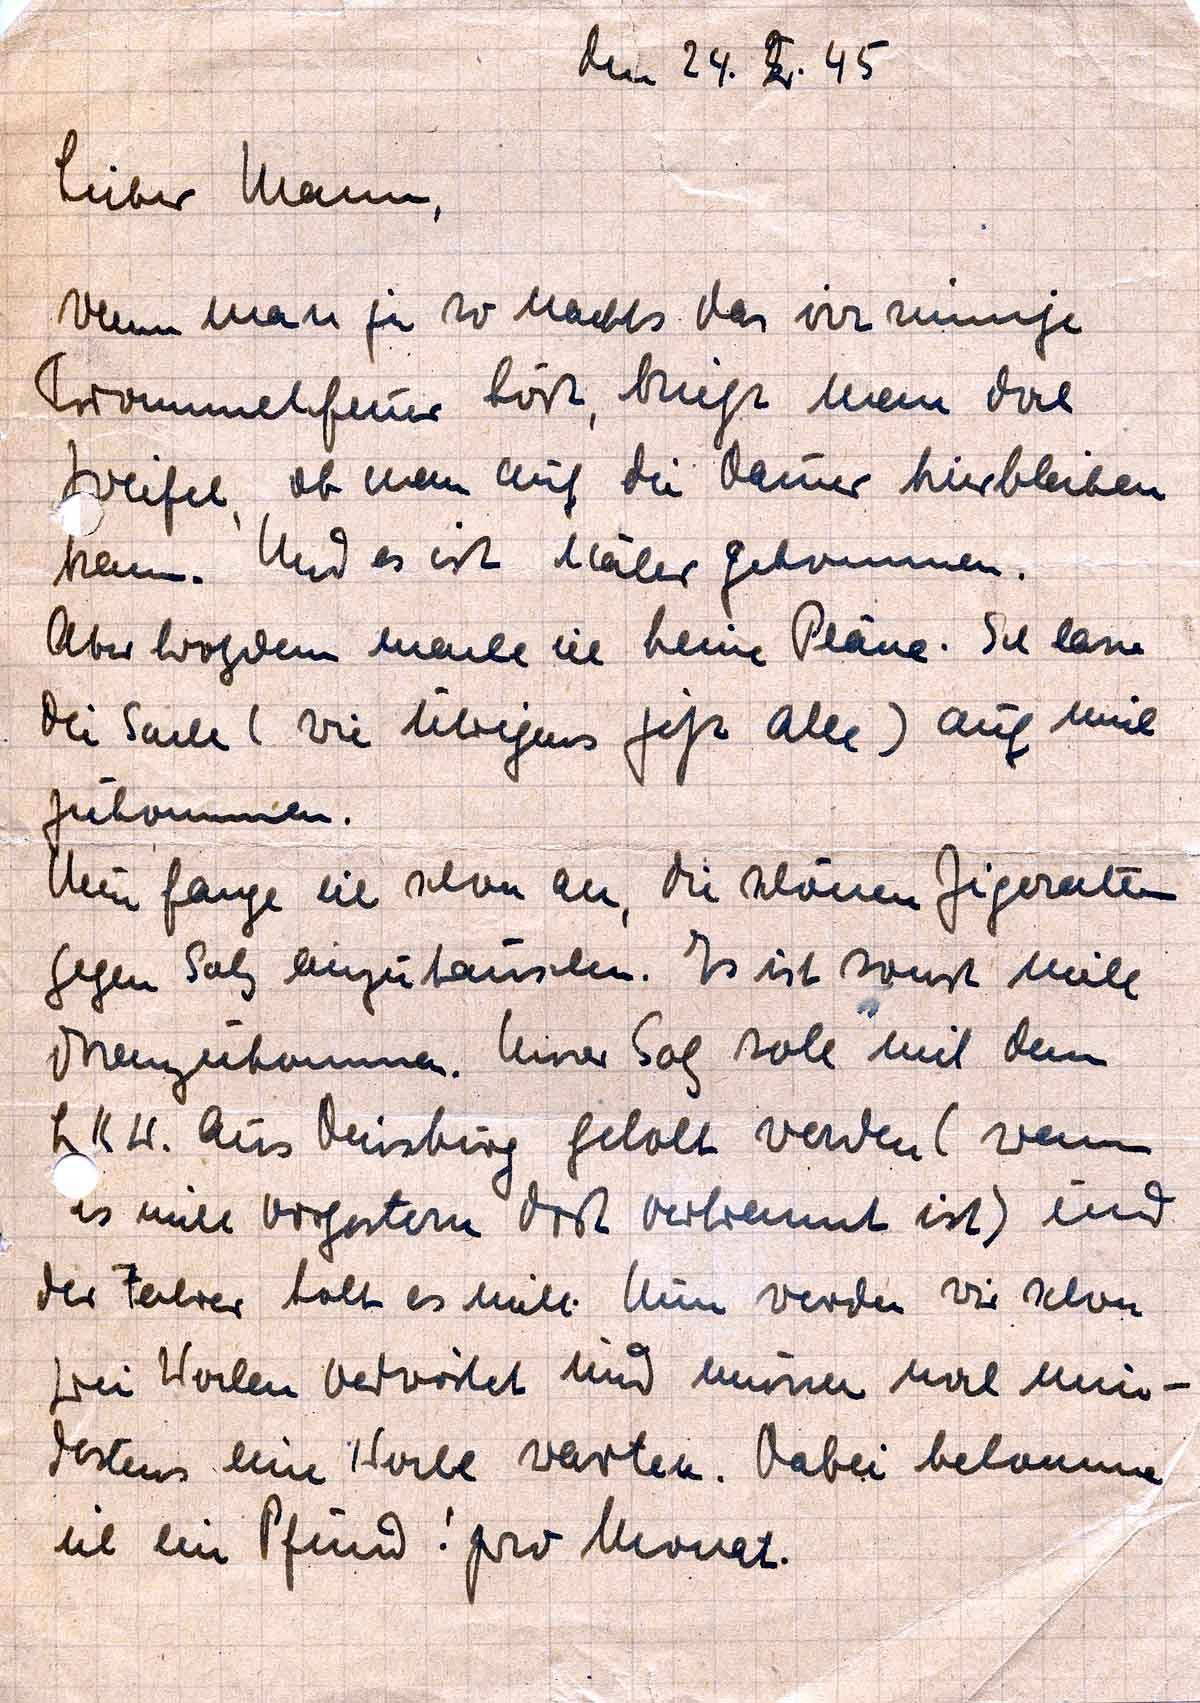 den 24. 2. 45
Lieber Mann,
wenn man ja so nachts das irrsinnige
Trommelfeuer hört, kriegt man doch
Zweifel, ob man auf die Dauer hierbleiben
kann. Und es ist näher gekommen.
Aber trotzdem mache ich keine Pläne. Ich lasse
die Sache (wie übrigens jetzt alle) auf mich
zukommen.
Nun fange ich schon an, die schönen Zigaretten
gegen Salz einzutauschen. Es ist sonst nicht
dranzukommen. Unser Salz soll mit dem
LKW. aus Duisburg geholt werden (wenn
es nicht vorgestern dort verbrannt ist) und
der Fahrer holt es nicht. Nun werden wir schon
zwei Wochen vertröstet und müssen noch min-
destens eine Woche warten. Dabei bekomme
ich ein Pfund! pro Monat.